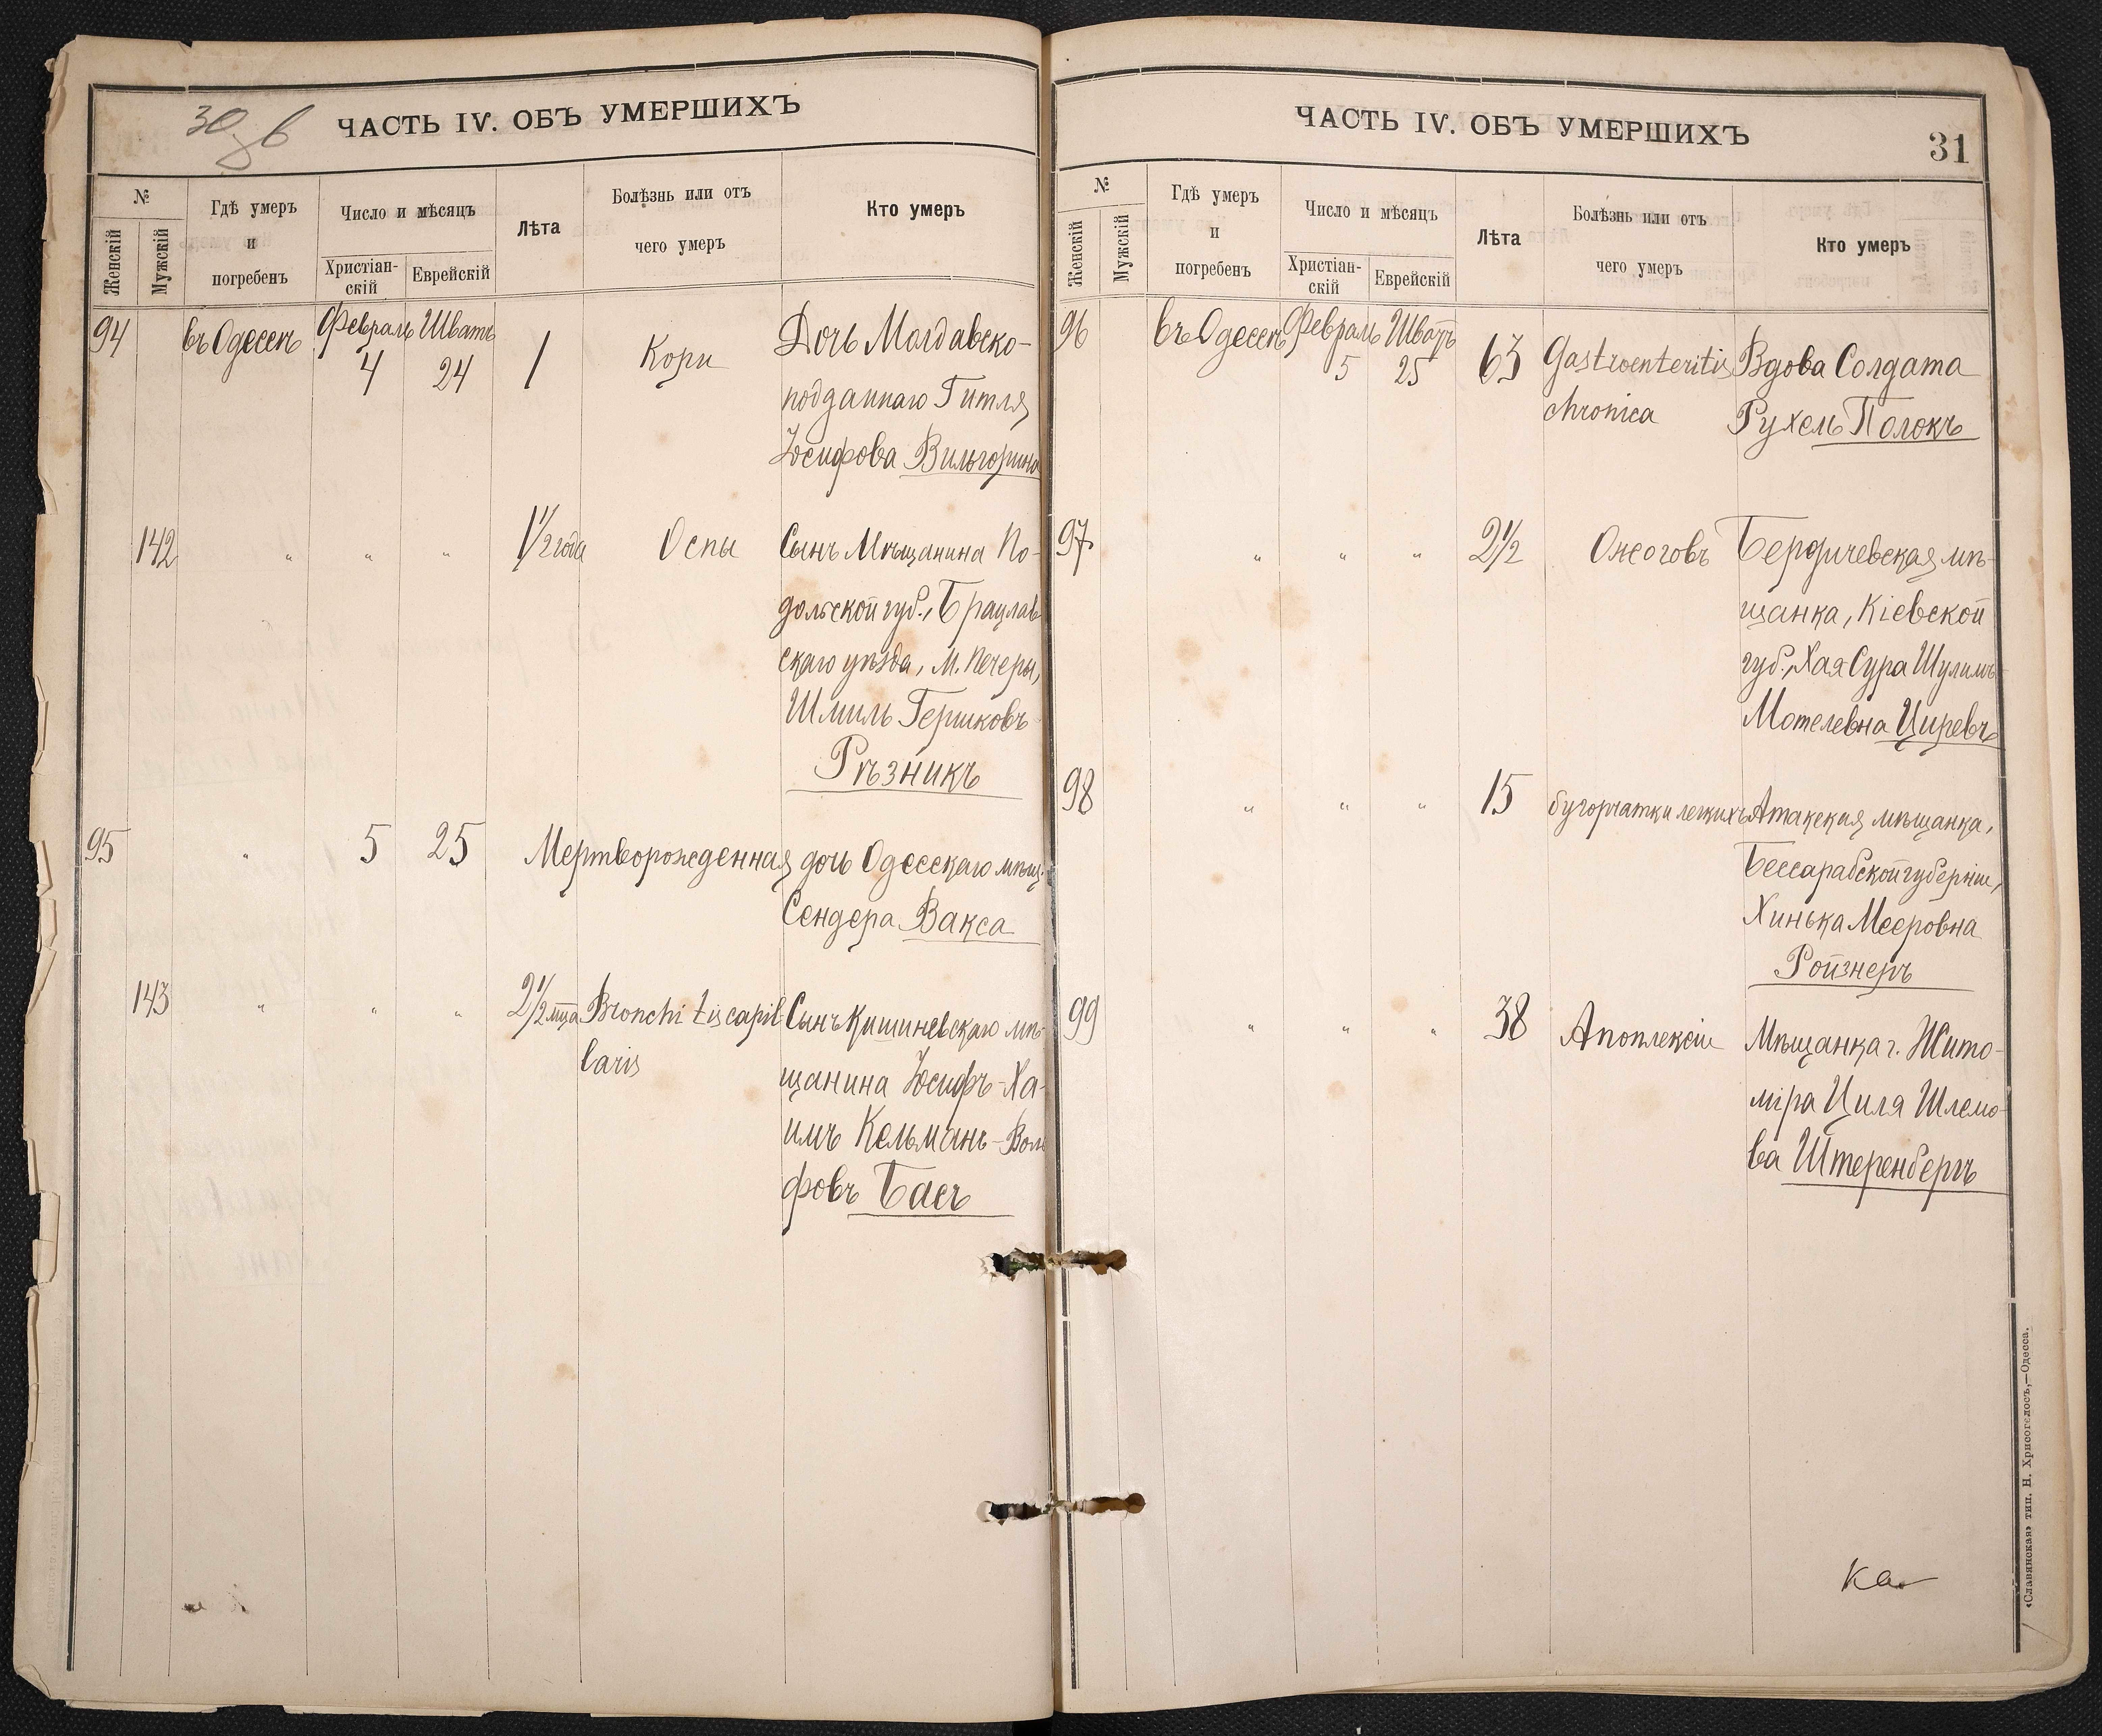 30 об
ЧАСТЬ IV. ОБЪ УМЕРШИХЪ
№
Женскій
Мужскій
Гдѣ умеръ
и
погребенъ
Число и мѣсяцъ
Христіан-
скій
Еврейскій
Лѣта
Болѣзнь или отъ
чего умеръ
Кто умеръ
94 въ Одессѣ Февраль 4 Шватъ 24 1 Кори Дочь Молдавско-
подданнаго Гитля
Іосифова Вильгорина
142 " " " 1 1/2 года Оспы Сынъ Мѣщанина По-
дольской губ., Брацлав-
скаго уѣзда, м. Печеры,
Шмиль Гершковъ
Рѣзникъ
95 " 5 25 Мертворожденная дочь Одесскаго мѣщ.
Сендера Вакса
143 " " " 2 1/2 мца Bronchitis capil- Сынъ Кишиневскаго мѣ-
laris
щанина Іосифъ-Ха-
имъ Кельманъ-Воль
фовъ Басъ
ЧАСТЬ IV. ОБЪ УМЕРШИХЪ
31
№
Женскій
Мужскій
Гдѣ умеръ
и
погребенъ
Число и мѣсяцъ
Христіан-
скій
Еврейскій
Лѣта
Болѣзнь или отъ
чего умеръ
Кто умеръ
96 въ Одессѣ Февраль 5 Шватъ 25 63 Gastroenteritis Вдова Солдата
chronica Рухель Полокъ
97 " " " 2 1/2 Ожоговъ Бердичевская мѣ-
щанка, Кіевской
губ., Хая Сура Шулимъ-
Мотелевна Циревъ
98 " " " 15 бугорчатки легкихъ Атакская мѣщанка,
Бессарабской губерніи,
Хинька Мееровна
Ройзнеръ
99 " " " 38 Апоплексіи Мѣщанка г. Жито-
міра Циля Шлемо-
ва Штеренбергъ
ка
«Славянская» тип. Н. Хрисогелосъ,—Одесса.